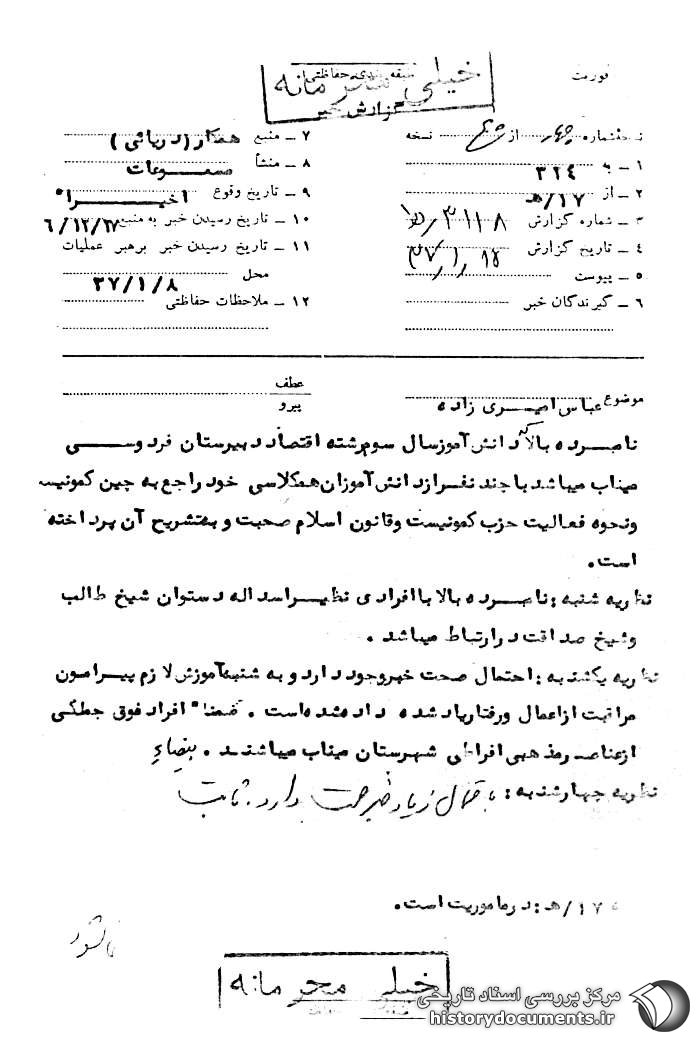 فوریت
طبقه بندی حفاظتی
خیلی محرمانه
گزارش خبر
نسخه شماره چهار از شش نسخه
۱ – به ۳۲۴
۲ – از ۱۷/هـ
۳ – شماره گزارش
۴ – تاریخ گزارش
۵ – پیوست
۶ – گیرندگان خبر
۷ – منبع همکار (دریائی)
۸ – منشأ مسموعات
۹ – تاریخ وقوع اخیراً
۱۰ – تاریخ رسیدن خبر به منبع
۱۱ – تاریخ رسیدن خبر برهبر عملیات
محل ۳۷/۱/۸
۱۲ – ملاحظات حفاظتی
موضوع عباس امیری زاده
عطف
پیرو
نامبرده بالا که دانش آموز سال سوم رشته اقتصاد دبیرستان فردوسی
میناب میباشد با چند نفر از دانش آموزان همکلاسی خود راجع به چین کمونیست
و نحوه فعالیت حزب کمونیست و قانون اسلام صحبت و به تشریح آن پرداخته
است.
نظریه شنبه : نامبرده بالا با افرادی نظیر اسداله دستوان شیخ طالب
و شیخ صداقت در ارتباط میباشد .
نظریه یکشنبه : احتمال صحت خبر وجود دارد و به شنبه آموزش لازم پیرامون
مراقبت از اعمال و رفتار یاد شده داده شده است . ضمناً افراد فوق جملگی
از عناصر مذهبی افراطی شهرستان میناب میباشند . بیضاء
نظریه چهارشنبه : باحتمال زیاد خبر صحت دارد. ثابت
هـ : در ماموریت است.
خیلی محرمانه
مرکز بررسی اسناد تاریخی
historydocuments.ir